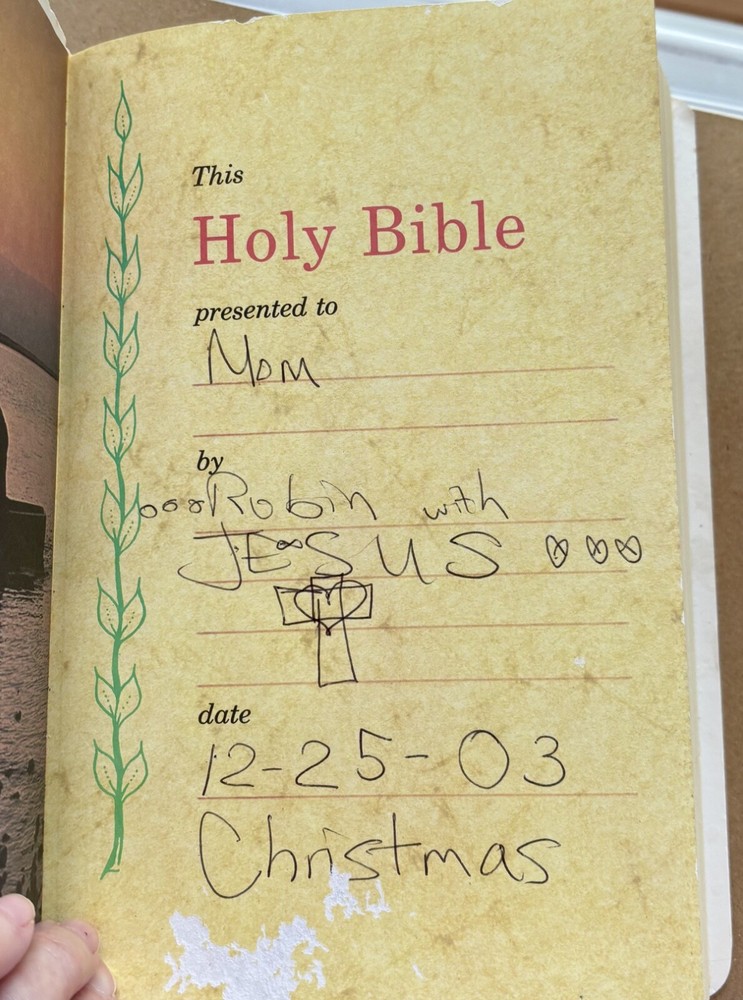 This
Holy Bible
presented to
Mom
by
Robin with
JESUS
date
12-25-03
Christmas